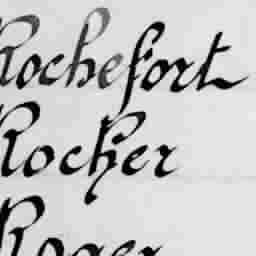 Rochefort
Rocher
Roger